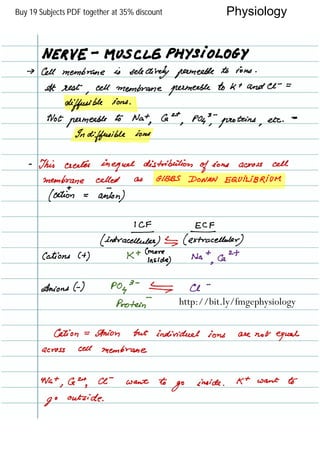 Buy 19 Subjects PDF together at 35% discount
Physiology
NERVE - MUSCLE PHYSIOLOGY
→ Cell membrane is selectively permeable to ions.
At rest, cell membrane permeable to K⁺ and Cl⁻ =
diffusible ions.
Not permeable to Na⁺, Ca²⁺, PO₄³⁻, proteins, etc. -
Indiffusible ions
- This creates inequal distribution of ions across cell
membrane called as GIBBS DONAN EQUILIBRIUM
(cation⁺ = anion⁻)
ICF ECF
(intracellular) ⇆ (extracellular)
Cations (+) K⁺ (more inside) Na⁺, Ca²⁺
Anions (-) PO₄³⁻ ⇆ Cl⁻
Protein⁻ http://bit.ly/fmgephysiology
Cation = Anion but individual ions are not equal
across cell membrane
Na⁺, Ca²⁺, Cl⁻ want to go inside. K⁺ want to
go outside.